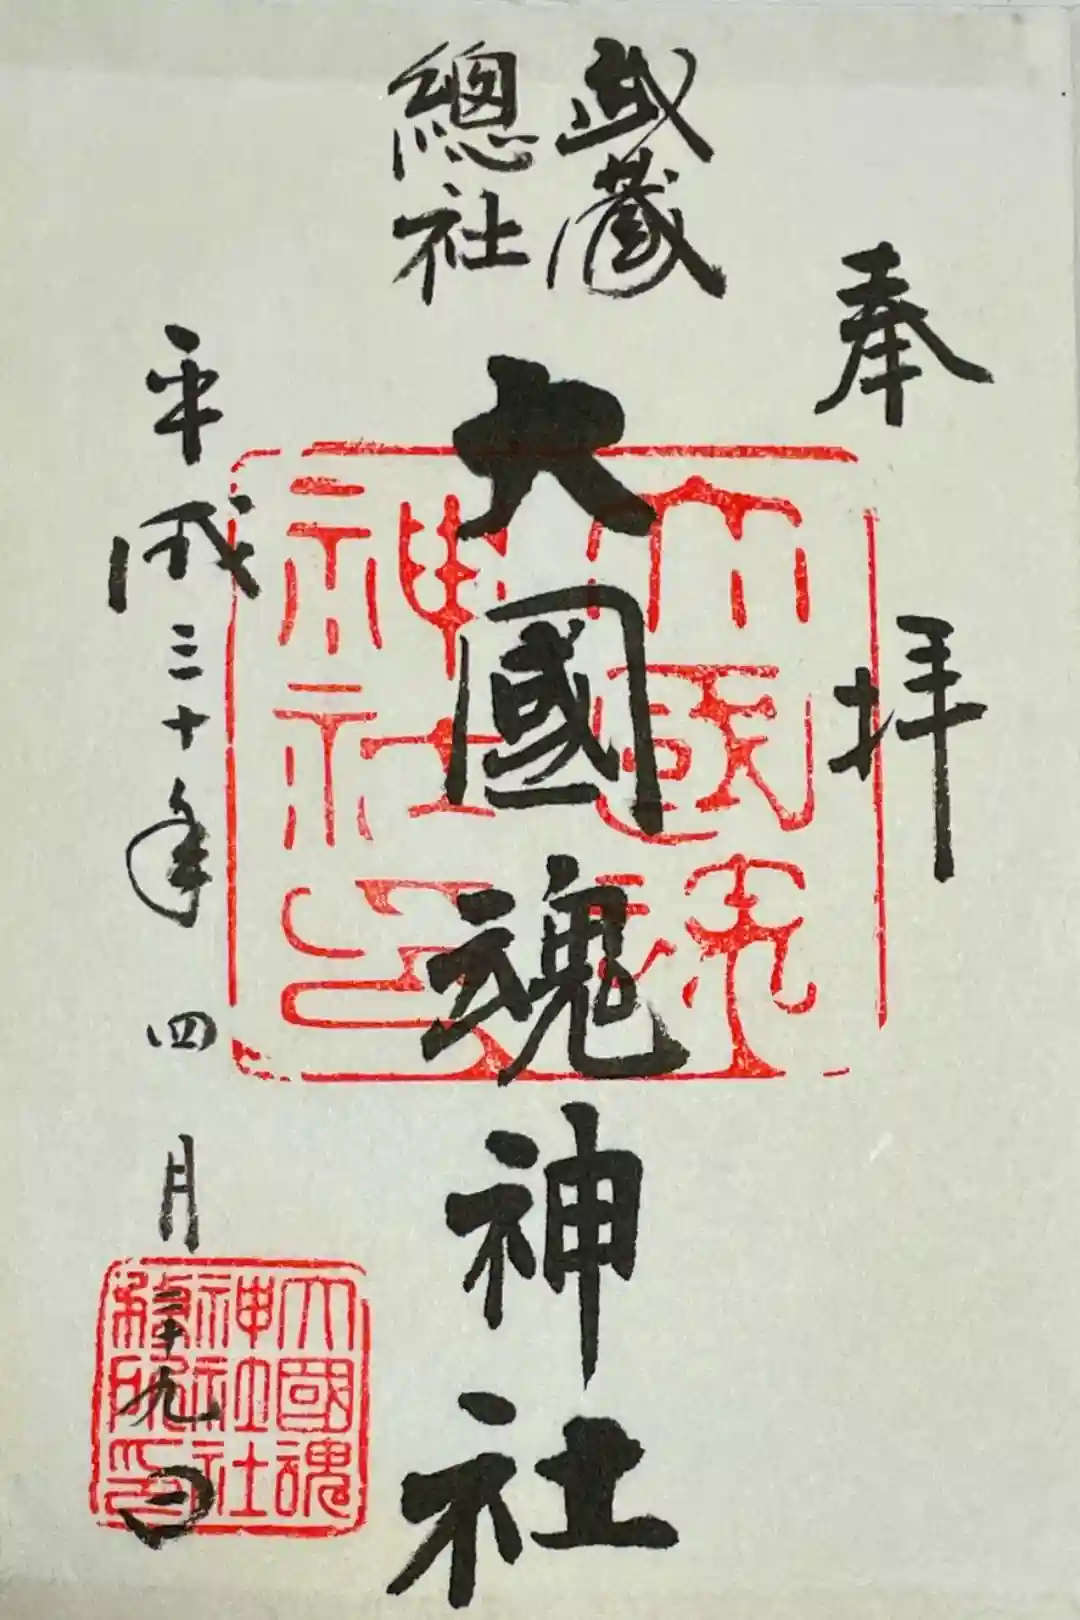 奉拜
武蔵
總社
大國魂神社
平成三十年四月二十九日
大國魂
神社印
大國魂
神社社
務所印